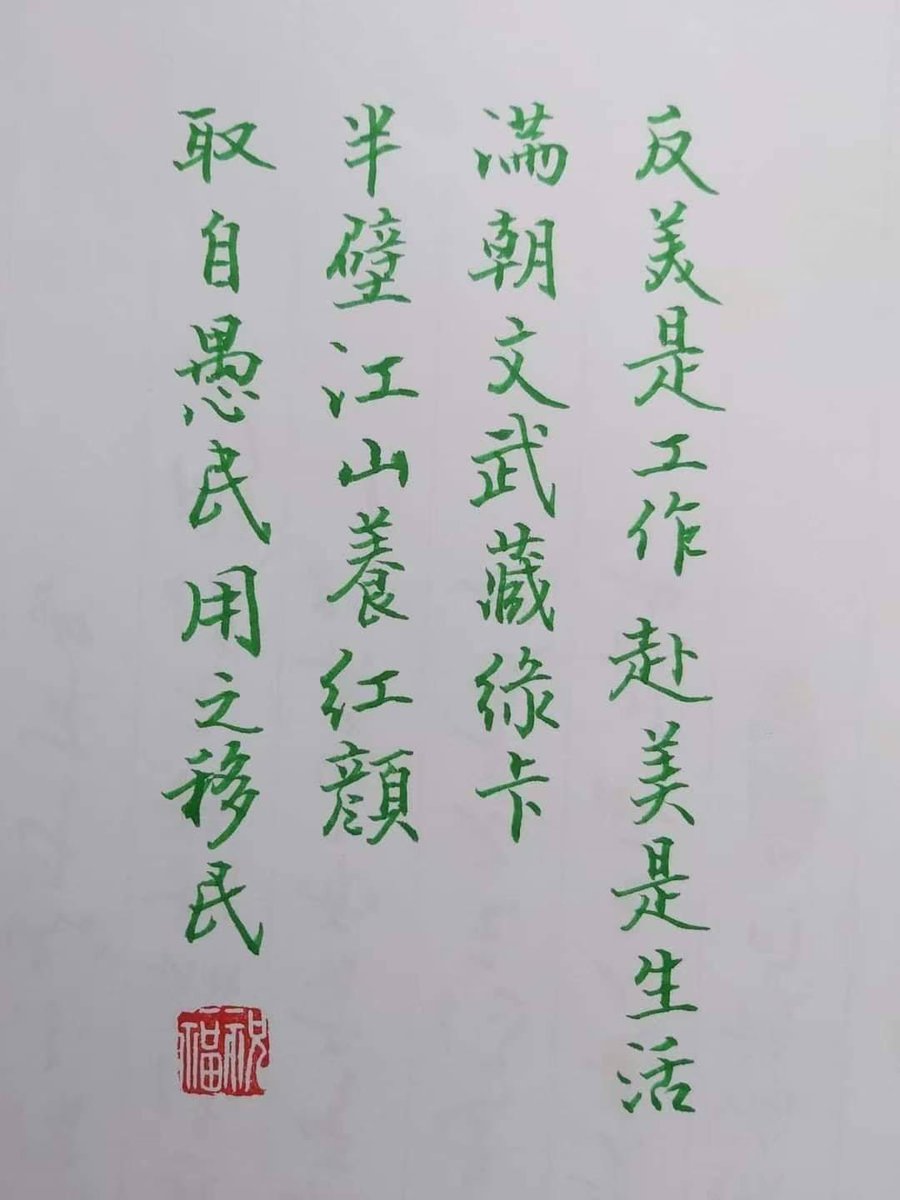 反美是工作 赴美是生活
满朝文武藏綠卡
半壁江山養红顔
取自愚民用之移民
祝福